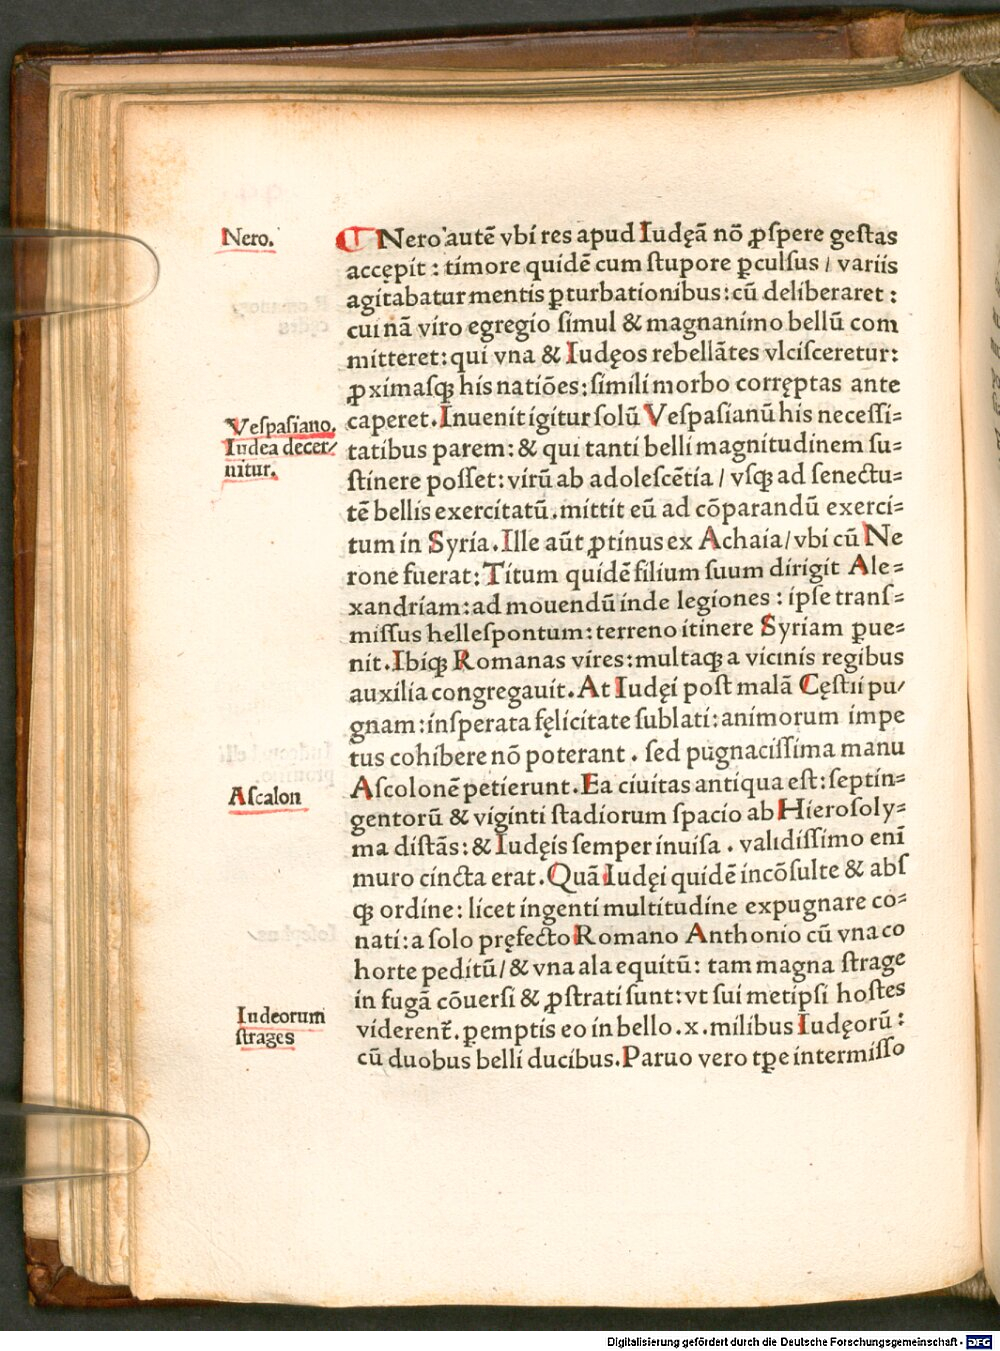 Nero.
⸿ Nero autē vbi res apud Iudęā nō ꝓspere gestas
accępit : timore quidē cum stupore ꝑculsus / variis
agitabatur mentis ꝑturbationibus : cū deliberaret :
cui nā viro egregio simul & magnanimo bellū com
mitteret : qui vna & Iudęos rebellātes vlcisceretur :
ꝓximasqꝫ his natiōes : simili morbo corręptas ante
caperet . Inuenit igitur solū Vespasianū his necessi=
Vespasiano.
Iudea decer/
nitur.
tatibus parem : & qui tanti belli magnitudinem su=
stinere posset : virū ab adolescētia / vsqꝫ ad senectu=
tē bellis exercitatū . mittit eū ad cōparandū exerci=
tum in Syria . Ille aūt ꝓtinus ex Achaia / vbi cū Ne
rone fuerat : Titum quidē filium suum dirigit Ale=
xandriam : ad mouendū inde legiones : ipse trans=
missus hellespontum : terreno itinere Syriam ꝑue=
nit . Ibiqꝫ Romanas vires : multaqꝫ a vicinis regibus
auxilia congregauit . At Iudęi post malā Cęstii pu/
gnam : insperata fęlicitate sublati : animorum impe
tus cohibere nō poterant . sed pugnacissima manu
Ascolonē petierunt . Ea ciuitas antiqua est : septin=
Ascalon
gentorū & viginti stadiorum spacio ab Hierosoly=
ma distās : & Iudęis semper inuisa . validissimo enī
muro cincta erat . Quā Iudęi quidē incōsulte & abs
qꝫ ordine : licet ingenti multitudine expugnare co=
nati : a solo pręfecto Romano Anthonio cū vna co
horte peditū / & vna ala equitū : tam magna strage
in fugā cōuersi & ꝓstrati sunt : vt sui metipsi hostes
Iudeorum
strages
viderent̄ . ꝑemptis eo in bello . x . milibus Iudęorū :
cū duobus belli ducibus . Paruo vero tꝑe intermisso
Digitalisierung gefördert durch die Deutsche Forschungsgemeinschaft - DFG